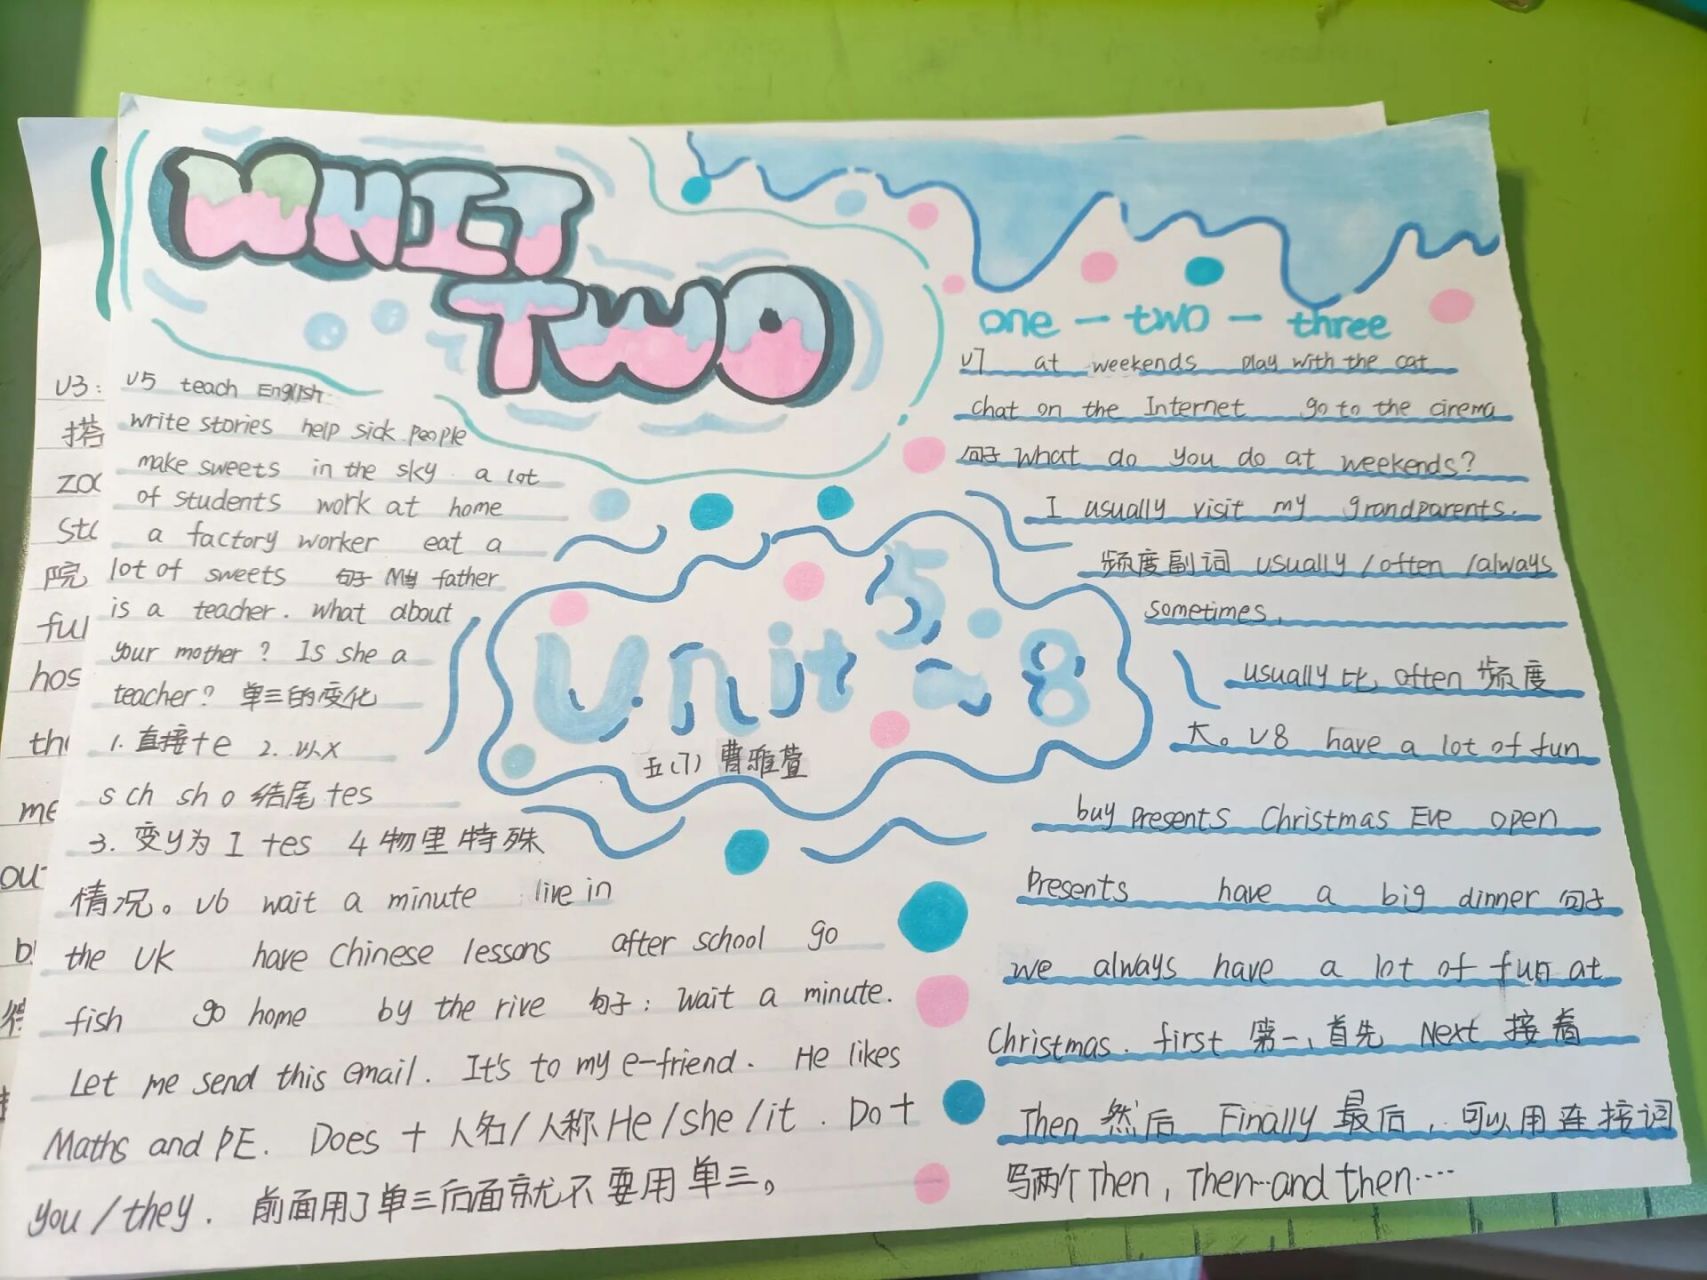 UNIT
TWO
U5 teach English
write stories help sick people
make sweets in the sky a lot
of students work at home
a factory worker eat a
lot of sweets 句子 My father
is a teacher. What about
your mother? Is she a
teacher? 单三的变化
1. 直接+e 2. 以x
s ch sh o 结尾+es
3. 变y为I +es 4 物里特殊
情况。U6 wait a minute live in
the UK have Chinese lessons after school go
fish go home by the rive 句子: Wait a minute.
Let me send this email. It's to my e-friend. He likes
Maths and PE. Does + 人名/人称 He/she/it. Do+
you/they. 前面用了单三后面就不要用单三。
Unit 5~8
五(7) 曹雅萱
one - two - three
U7 at weekends play with the cat
chat on the Internet go to the cinema
句子 What do you do at weekends?
I usually visit my grandparents.
频度副词 usually/often/always
sometimes.
usually 比 often 频度
大。U8 have a lot of fun
buy presents Christmas Eve open
Presents have a big dinner 句子
We always have a lot of fun at
Christmas. first 第一、首先 Next 接着
Then 然后 Finally 最后, 可以用连接词
写两个Then, Then…and then……
U3:
搭
院
hos